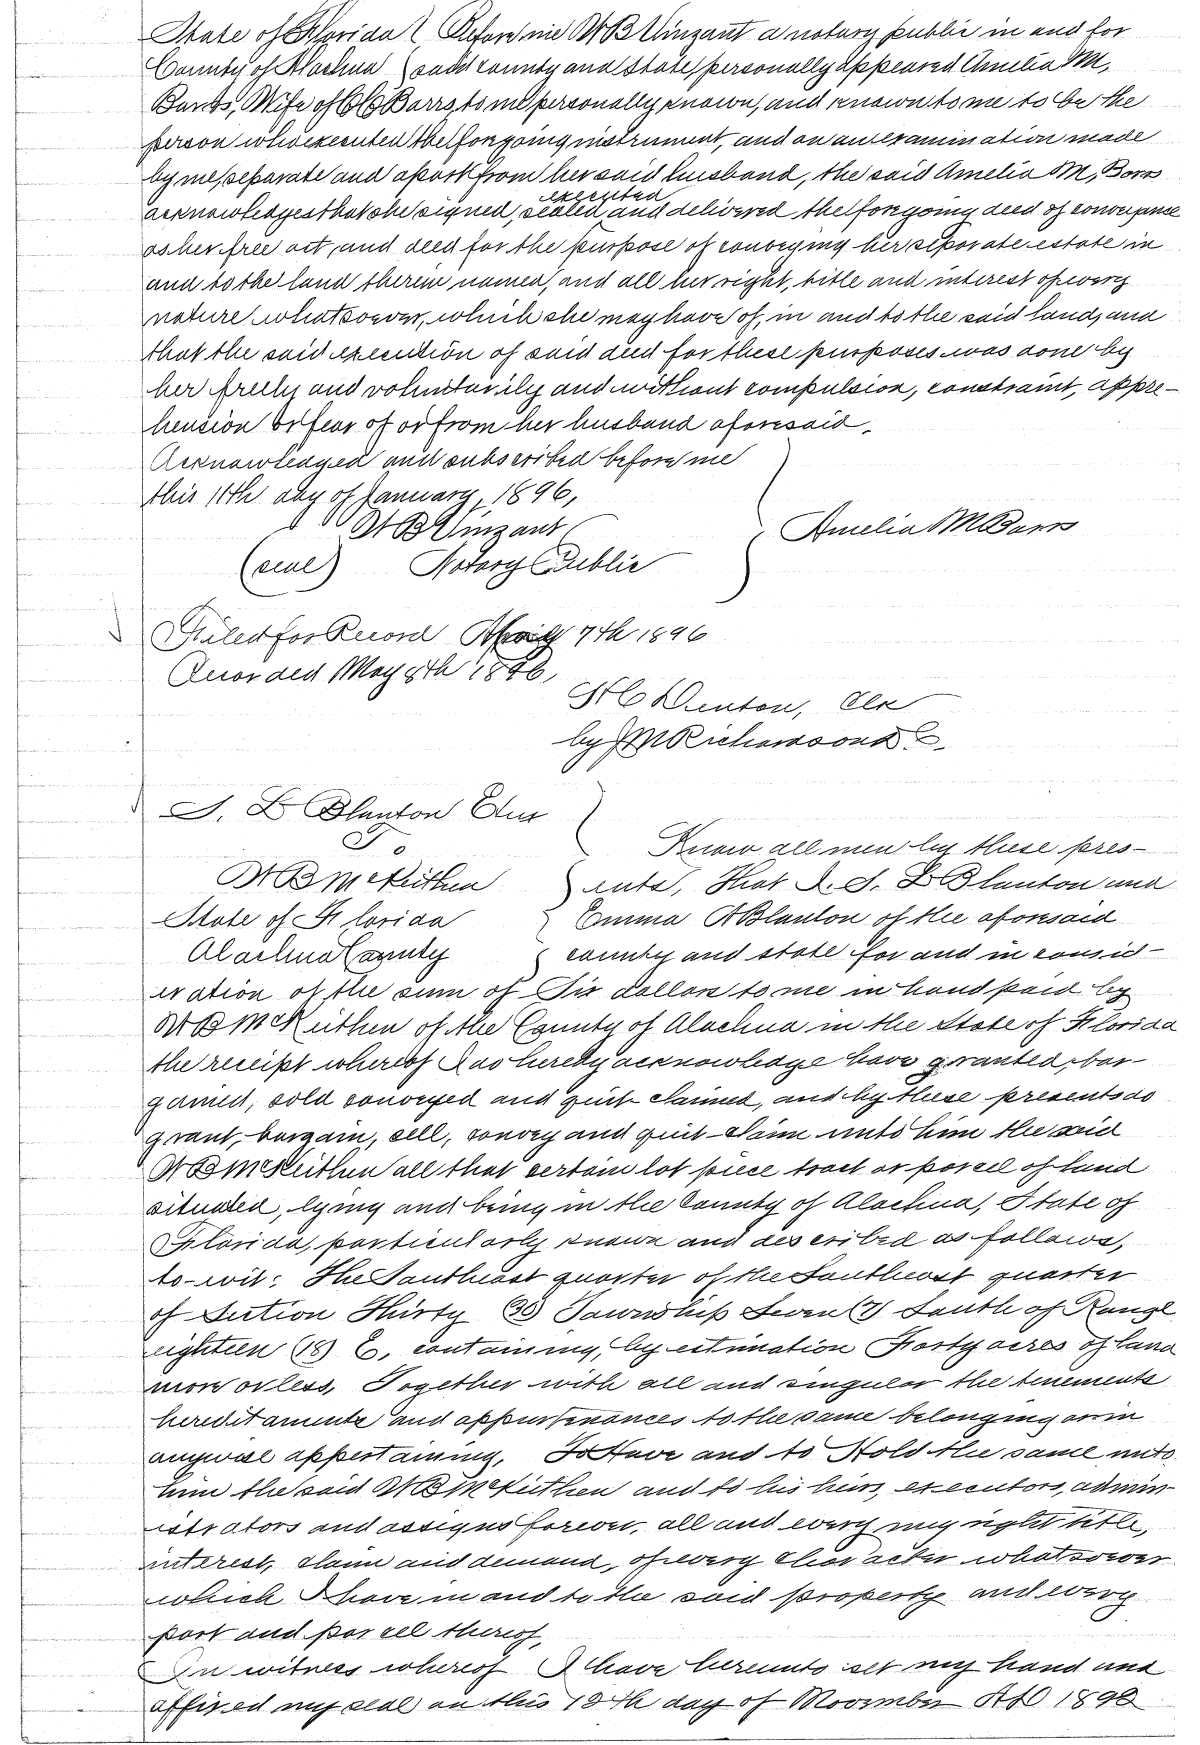 State of Florida } Before me W B Vinzant a notary public in and for
County of Alachua } said county and State, personally appeared Amelia M.
Barrs, Wife of C C Barrs, to me personally known, and known to me to be the
person who executed the forgoing instrument, and on an examination made
by me, separate and apart from her said husband, the said Amelia M. Barrs
executed
acknowledges that she signed, sealed and delivered the foregoing deed of conveyance
as her free act, and deed for the purpose of conveying her separate estate in
and to the land therein named, and all her right, title and interest of every
nature whatsoever, which she may have of, in and to the said land, and
that the said execution of said deed for these purposes was done by
her freely and voluntarily and without compulsion, constraint, appre-
hension or fear of or from her husband aforesaid.
Acknowledged and subscribed before me
this 11th day of January, 1896,
W B Vinzant
Amelia M Barrs
(seal) Notary Public
Filed for Record 7th 1896
Recorded May 8th 1896,
H C Denton, Clk
by M Richardson
J. L Blanton Etux
To
Know all men by these pres-
W B McKeithen } ents, That I. J. L Blanton and
State of Florida } Emma A Blanton of the aforesaid
Alachua County } county and state for and in consid-
eration of the sum of Six dollars to me in hand paid by
W B McKeithen of the County of Alachua in the State of Florida
the receipt whereof I do hereby acknowledge have granted, bar-
gained, sold conveyed and quit claimed, and by these presents do
grant, bargain, sell, convey and quit-claim unto him the said
W B McKeithen all that certain lot piece tract or parcel of land
situated, lying and being in the County of Alachua, State of
Florida, particularly known and described as follows,
to-wit: The Southeast quarter of the Southeast quarter
of Section Thirty (30) Township Seven (7) South of Range
eighteen (18) E, containing, by estimation Forty acres of land
more or less, Together with all and singular the tenements
hereditaments and appurtenances to the same belonging or in
anywise appertaining, To Have and to Hold the same unto
him the said W B McKeithen and to his heirs, executors, admin-
istrators and assigns forever, all and every my right title,
interest, claim and demand, of every character whatsoever
which I have in and to the said property and every
part and parcel thereof,
In witness whereof I have hereunto set my hand and
affixed my seal on this 18th day of November AD